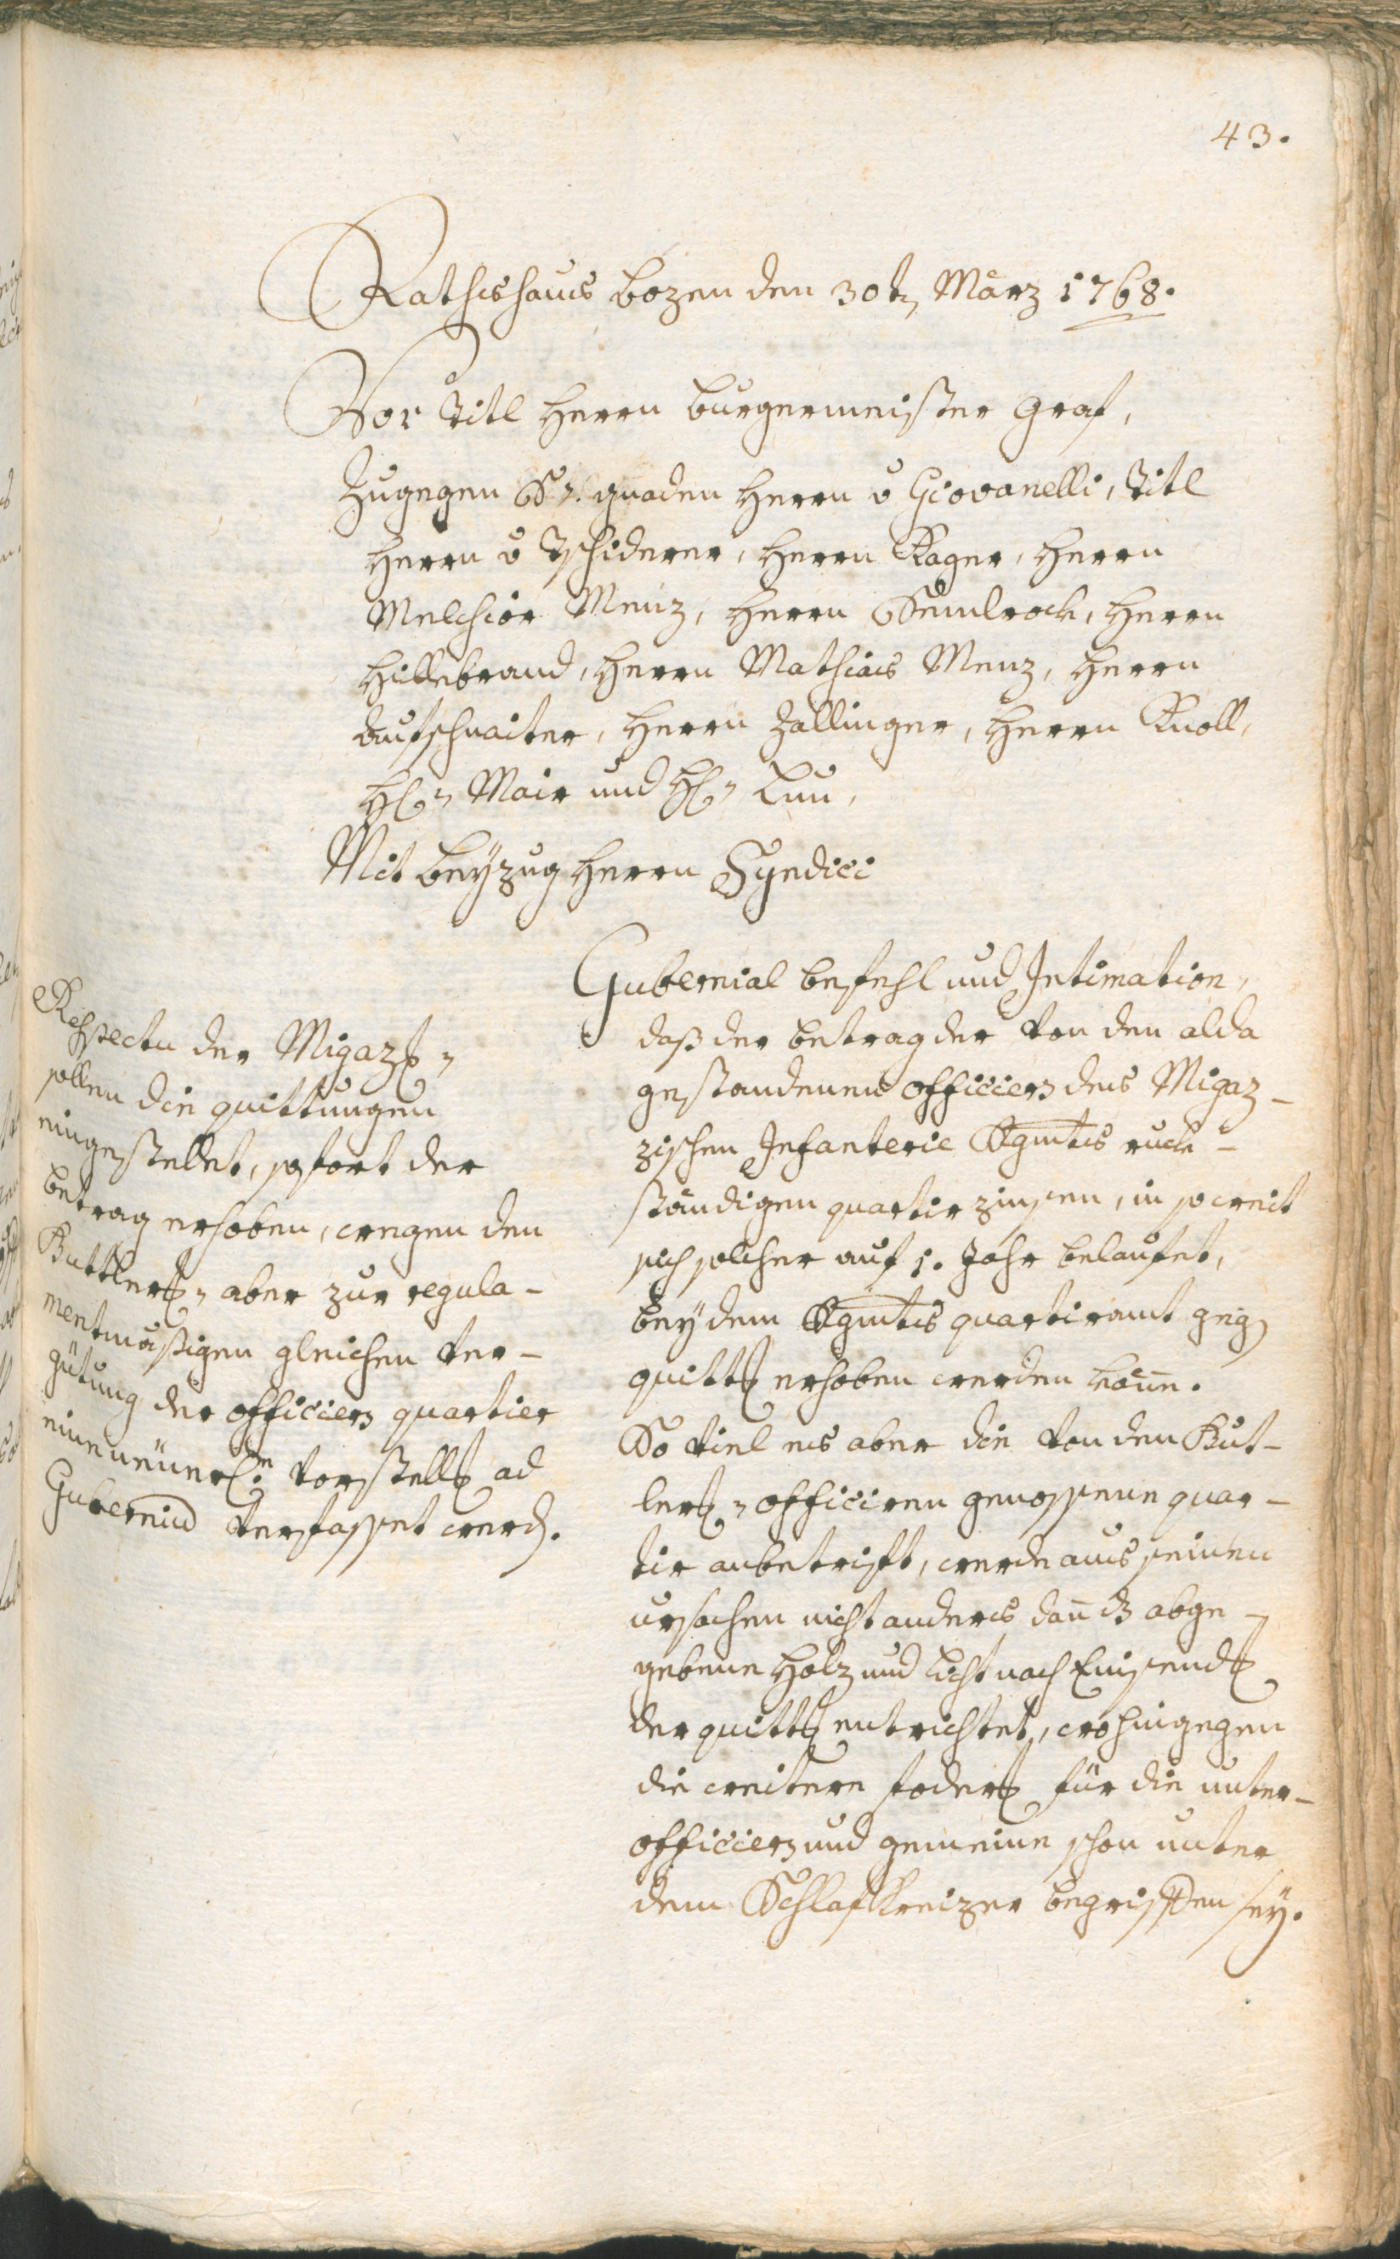 43.
Rathshaus Bozen den 30t(en) März 1768.
Vor Titl Herrn Burgermeister Graf,
Zugegen Sr. gnaden Herrn v Giovanelli, Titl
Herrn v Tschiderer, Herrn Rager, Herrn
Melchior Menz, Herrn Semlrock, Herrn
Hillebrand, Herrn Mathias Menz, Herrn
Aufschnaiter, Herrn Zallinger, Herrn Knoll,
H(errn) Mair und H(errn)
Mit beyzug Herrn Syndici
Gubernial befehl und Intimation,
daß der betrag der von den alda
gestandenen officiers des Migaz-
zischen Infanterie Rgmts ruck-
ständigen quartier zinsen, in so weit
sich solcher auf 1. Jahr belaufet,
bey dem Rgmts quartiramt geg(en)
quitt(ung) erhoben werden könne.
So viel es aber die von den But-
ler(ischen) officiren genossene quar-
tir anbetrift, werde aus seinen
ursachen nicht anders dan dz abge-
gebene Holz und licht nach Einsend(ung)
der quitt(ung) entrichtet, wohingegen
die weitere foder(ung) für die unter-
officiers und gemeine schon unter
dem Schlafkreizer begriffen sey.
Respectu der Migazi(schen)
sollen die quittungen
eingestellet, sofort der
betrag erhoben, wegen den
Buttler(ischen) aber zur regula-
mentmäßigen gleichen ver-
gütung der officiers quartier
eine neuerl(iche) vorstell(ung) ad
Guberniu(m) verfasset werd(en).